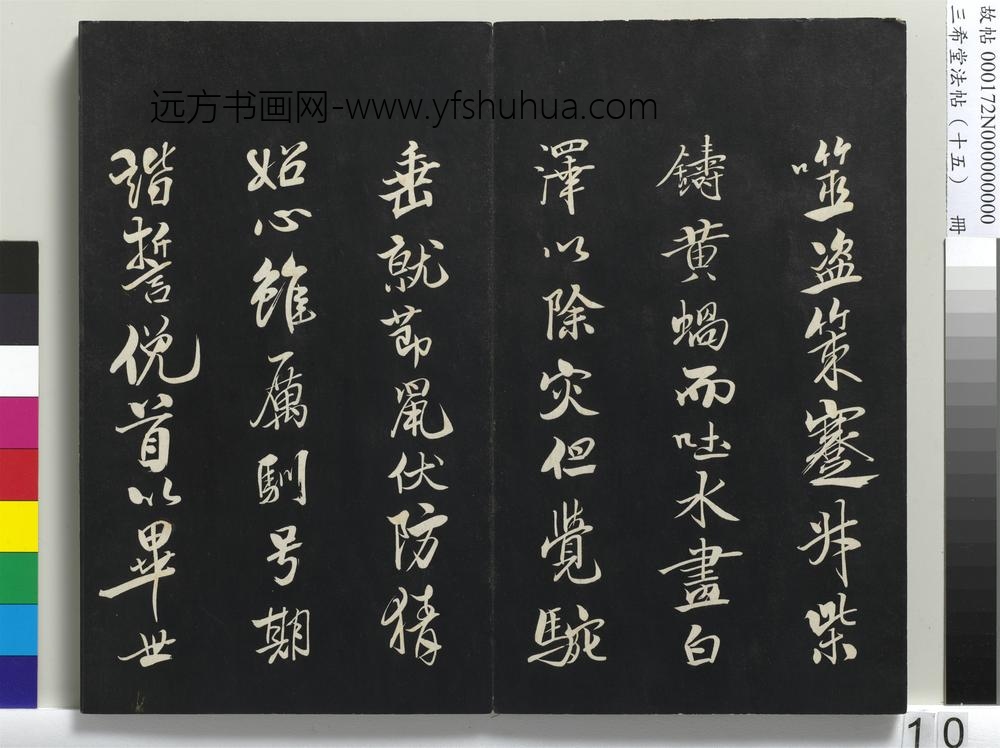 噬盗策蹇舛柴
鑄黄蝸而吐水畫白
澤以除灾但覺駝
垂就節鼠伏防猜
始心雖厲馴号期
諧誓俛首以畢世
远方书画网-www.yfshuhua.com
故帖 000172N000000000
三希堂法帖（十五） 册
10